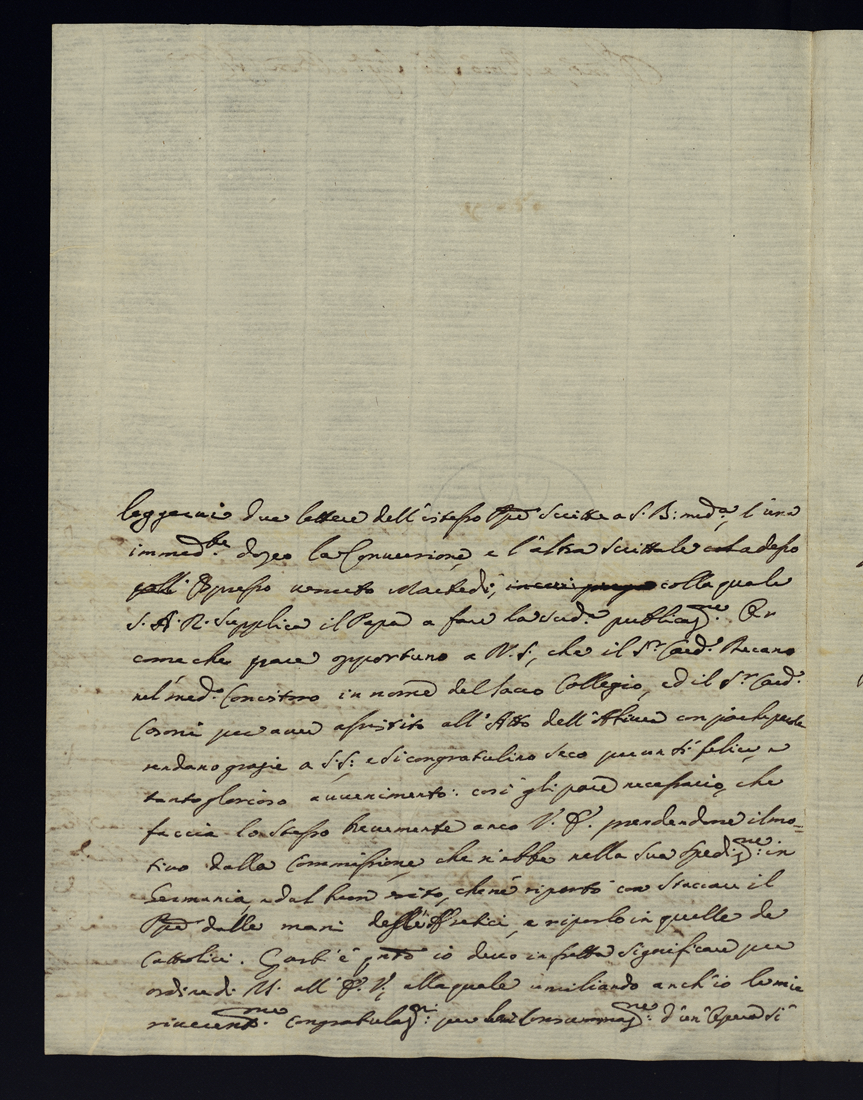 leggervi due lettere dell'istesso Ppe scritte a S. B: med.a, l'una
immed.te dopo la Conversione, e l'altra scrittale adesso
coll'Espresso venuto Martedì, colla quale
S. A. R. supplica il Papa a fare la sud.a public.ne. Or
come che pare opportuno a N. S., che il S.r Card.e Decano
nel med.o Concistoro in nome del Sacro Collegio, ed il S.r Card.e
per aver assistito all'Atto dell'Abiura con poche parole
rendano grazie a S. S: e si congratulino seco per un sì felice, e
tanto glorioso avvenimento: così gli pare necessario, che
faccia lo stesso brevemente anco V. E. prendendone il mo=
tivo dalla Commissione che n'ebbe nella sua Spediz.ne: in
Germania, e dal buon esito, che ne riportò con staccare il
Ppe dalle mani degl'Eretici, e riporlo in quelle de
Cattolici. io devo in fretta significare per
ordine di all'E. V., alla quale umiliando anch'io le mie
congratulaz.ni: per la Consumaz.ne: d'un'Opera sì